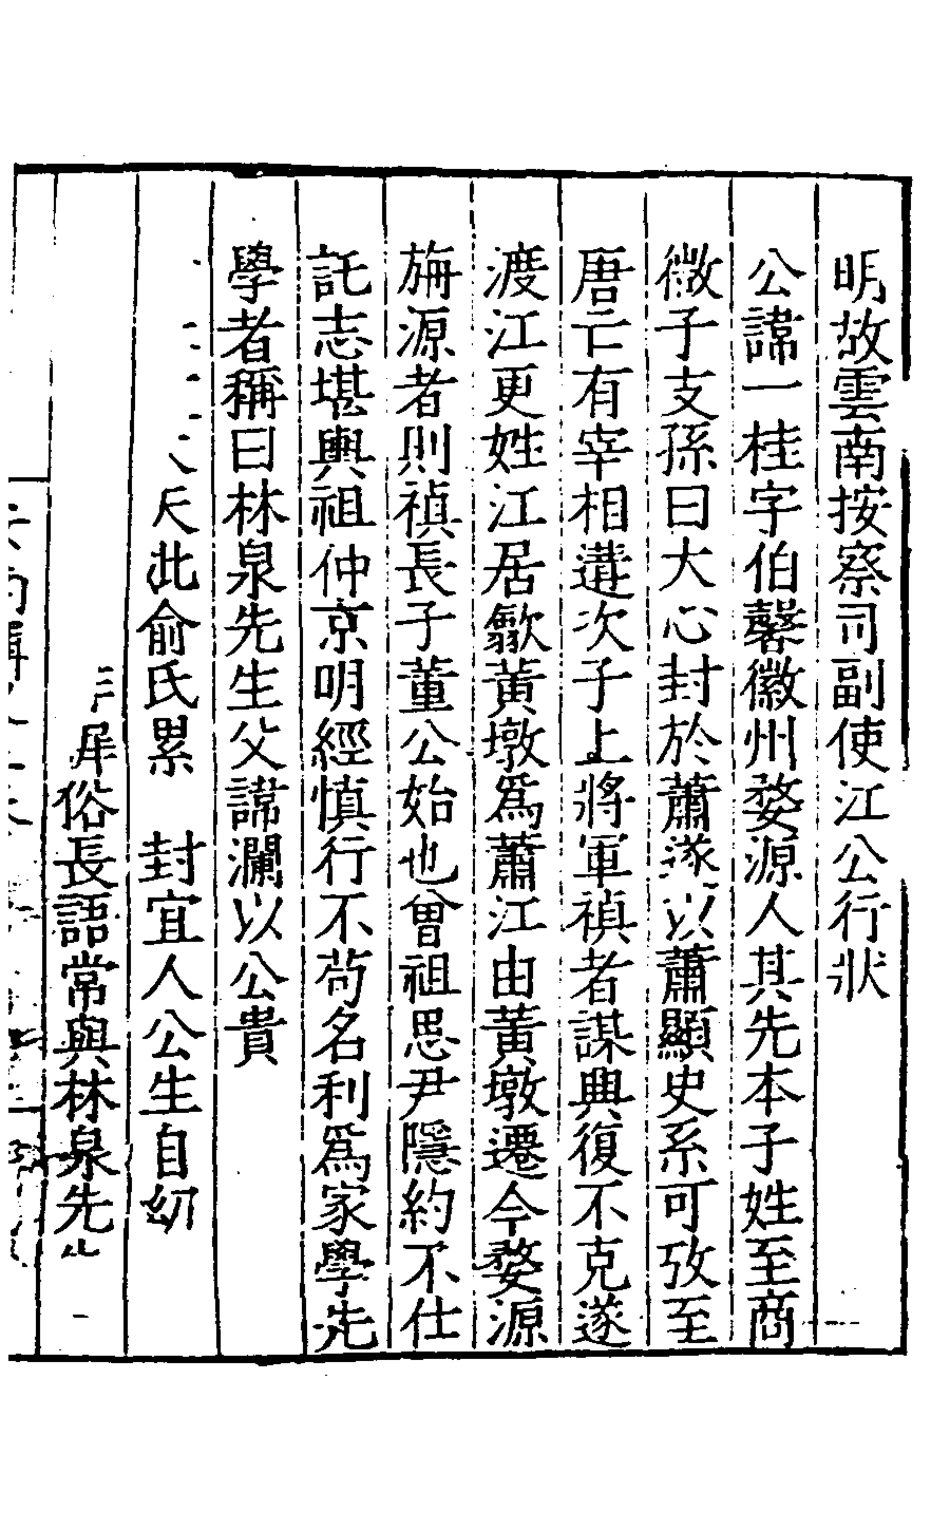 明故雲南按察司副使江公行狀
公諱一桂字伯馨徽州婺源人其先本子姓至商
微子支孫曰大心封於蕭遂以蕭顯史系可攷至
唐亡有宰相遘次子上將軍禎者謀興復不克遂
渡江更姓江居歙黃墩爲蕭江由黃墩遷今婺源
旃源者則禎長子董公始也曾祖思尹隱約不仕
託志堪輿祖仲京明經慎行不苟名利爲家學先
學者稱曰林泉先生父諱瀾以公貴
此俞氏累 封宜人公生自幼
俗長語常與林泉先